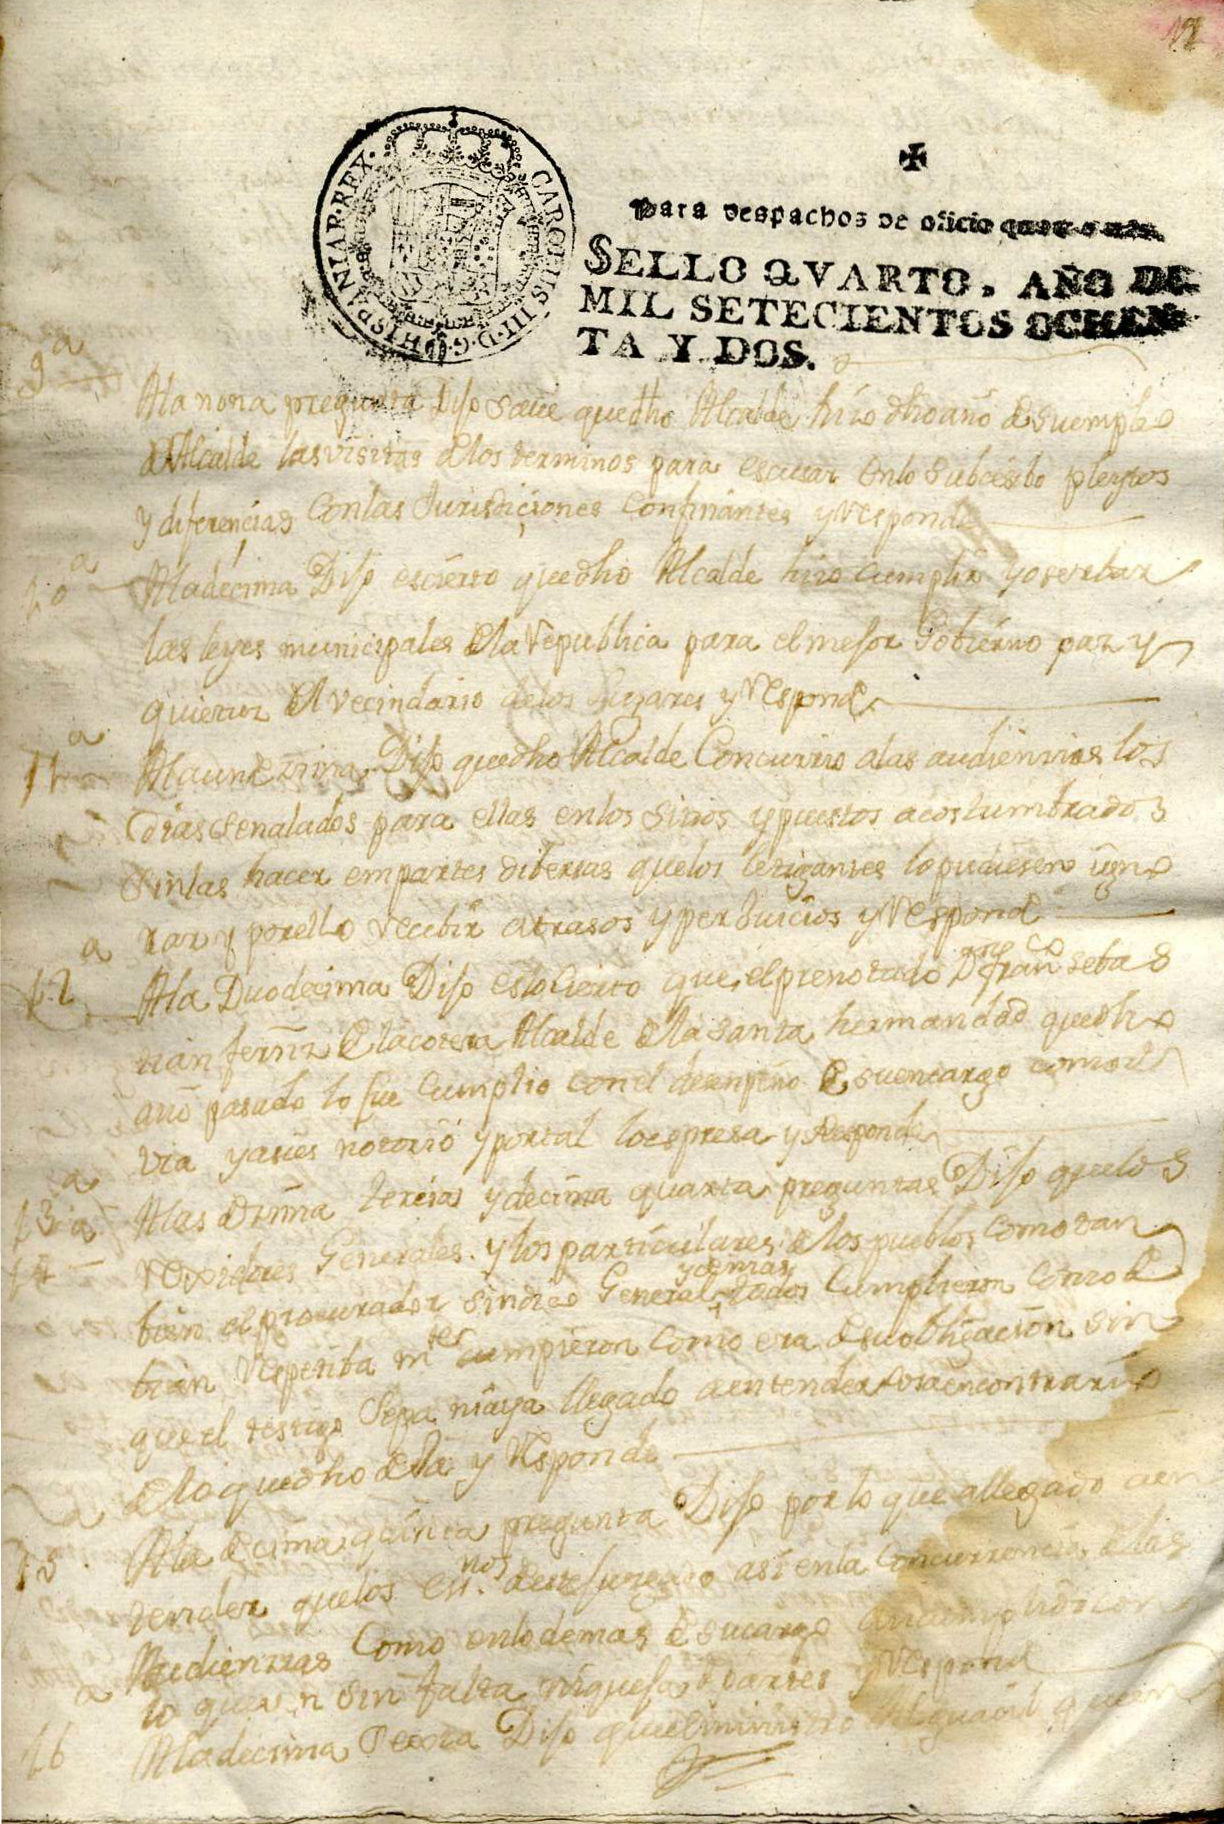 CAROLUS III D G HISPANIAR REX
Para despachos de oficio
SELLO QVARTO, AÑO DE
MIL SETECIENTOS OCHEN
TA Y DOS.
9a
Ala nona pregunta Dijo save que dho Alcalde hizo dho año de su empleo
de Alcalde las visitas de los terminos para escusar en lo subcesibo pleytos
y diferencias con las Jurisdiciones confinantes y responde
10a
Ala decima Dijo es cierto que dho Alcalde hizo cumplir y oserbar
las leyes municipales de la republica para el mejor Gobierno paz y
quietuz del vecindario de los lugares y responde
11a
Ala undezima Dijo que dho Alcalde Concurrio a las audienzias los
dias senalados para ellas en los sitios y puestos acostumbrados
sin las hacer em partes dibersas que los letigantes lo pudiesen igno
rar y por ello recibir atrasos y perjuicios y responde
12a
Ala Duodecima Dijo es lo cierto que el prenotado Dn franco sebas
tian fernz de la cotera Alcalde de la santa hermandad que dho
año pasado lo fue cumplio con el desenpeño de su encargo como de
via y asi es notorio y por tal lo espresa y Responde
13a
14
Alas dezima tercia y decima quarta preguntas Dijo que los
rexidores Generales y los particulares de los pueblos como tan
bien el procurador sindico General y demas todos Cumplieron como
tian respetiba mte cumpieron como era de su obligacion sin
que el testigo sepa ni aya llegado a entender cosa en contrario
de lo que dho deja y responde
15a
Ala decima quinta pregunta Dijo por lo que a llegado a en
tender que los esnos de este juzgado asi en la concurrencia de las
Audienzias como en lo demas de su cargo an cumplido con
lo que sin falta ni queja de partes y responde
16a
Ala decima sexta Dijo que el ministro Alguacil que en